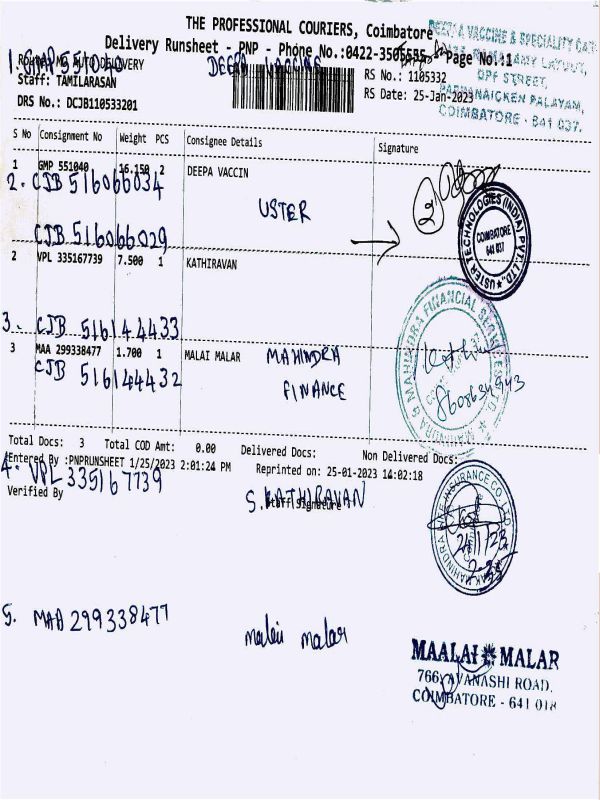 THE PROFESSIONAL COURIERS, Coimbatore
Delivery Runsheet - PNP - Phone No.:0422-3505595 Page No.:1
DEEPA VACCINE & SPECIALITY
LAYOUT,
DPF STREET,
PAPPANAICKEN PALAYAM,
COIMBATORE - 641 037.
1. GMP 551040 DEEPA VACCINE
AUTO DELIVERY
Staff: TAMILARASAN
DRS No.: DCJB110533201
RS No.: 1105332
RS Date: 25-Jan-2023
S No Consignment No Weight PCS Consignee Details Signature
1 GMP 551040 16.150 2 DEEPA VACCIN
2. CJB 516066034
USTER
CJB 516066029
USTER TECHNOLOGIES (INDIA) PVT. LTD.
COIMBATORE
641 037
2 VPL 335167739 7.500 1 KATHIRAVAN
3. CJB 516144433
3 MAA 299338477 1.700 1 MALAI MALAR
MAHINDRA
CJB 516144432
FINANCE
MAHINDRA & MAHINDRA FINANCIAL SERVICES LTD.
8608634943
Total Docs: 3 Total COD Amt: 0.00 Delivered Docs: Non Delivered Docs:
Entered By :PNPRUNSHEET 1/25/2023 2:01:24 PM Reprinted on: 25-01-2023 14:02:18
4. VPL 335167739
Verified By
S.KATHIRAVAN
Staff Signature
MAHINDRA LIFE INSURANCE CO. LTD.
5. MAA 299338477 malai malar
MAALAI MALAR
766, AVANASHI ROAD,
COIMBATORE - 641 018